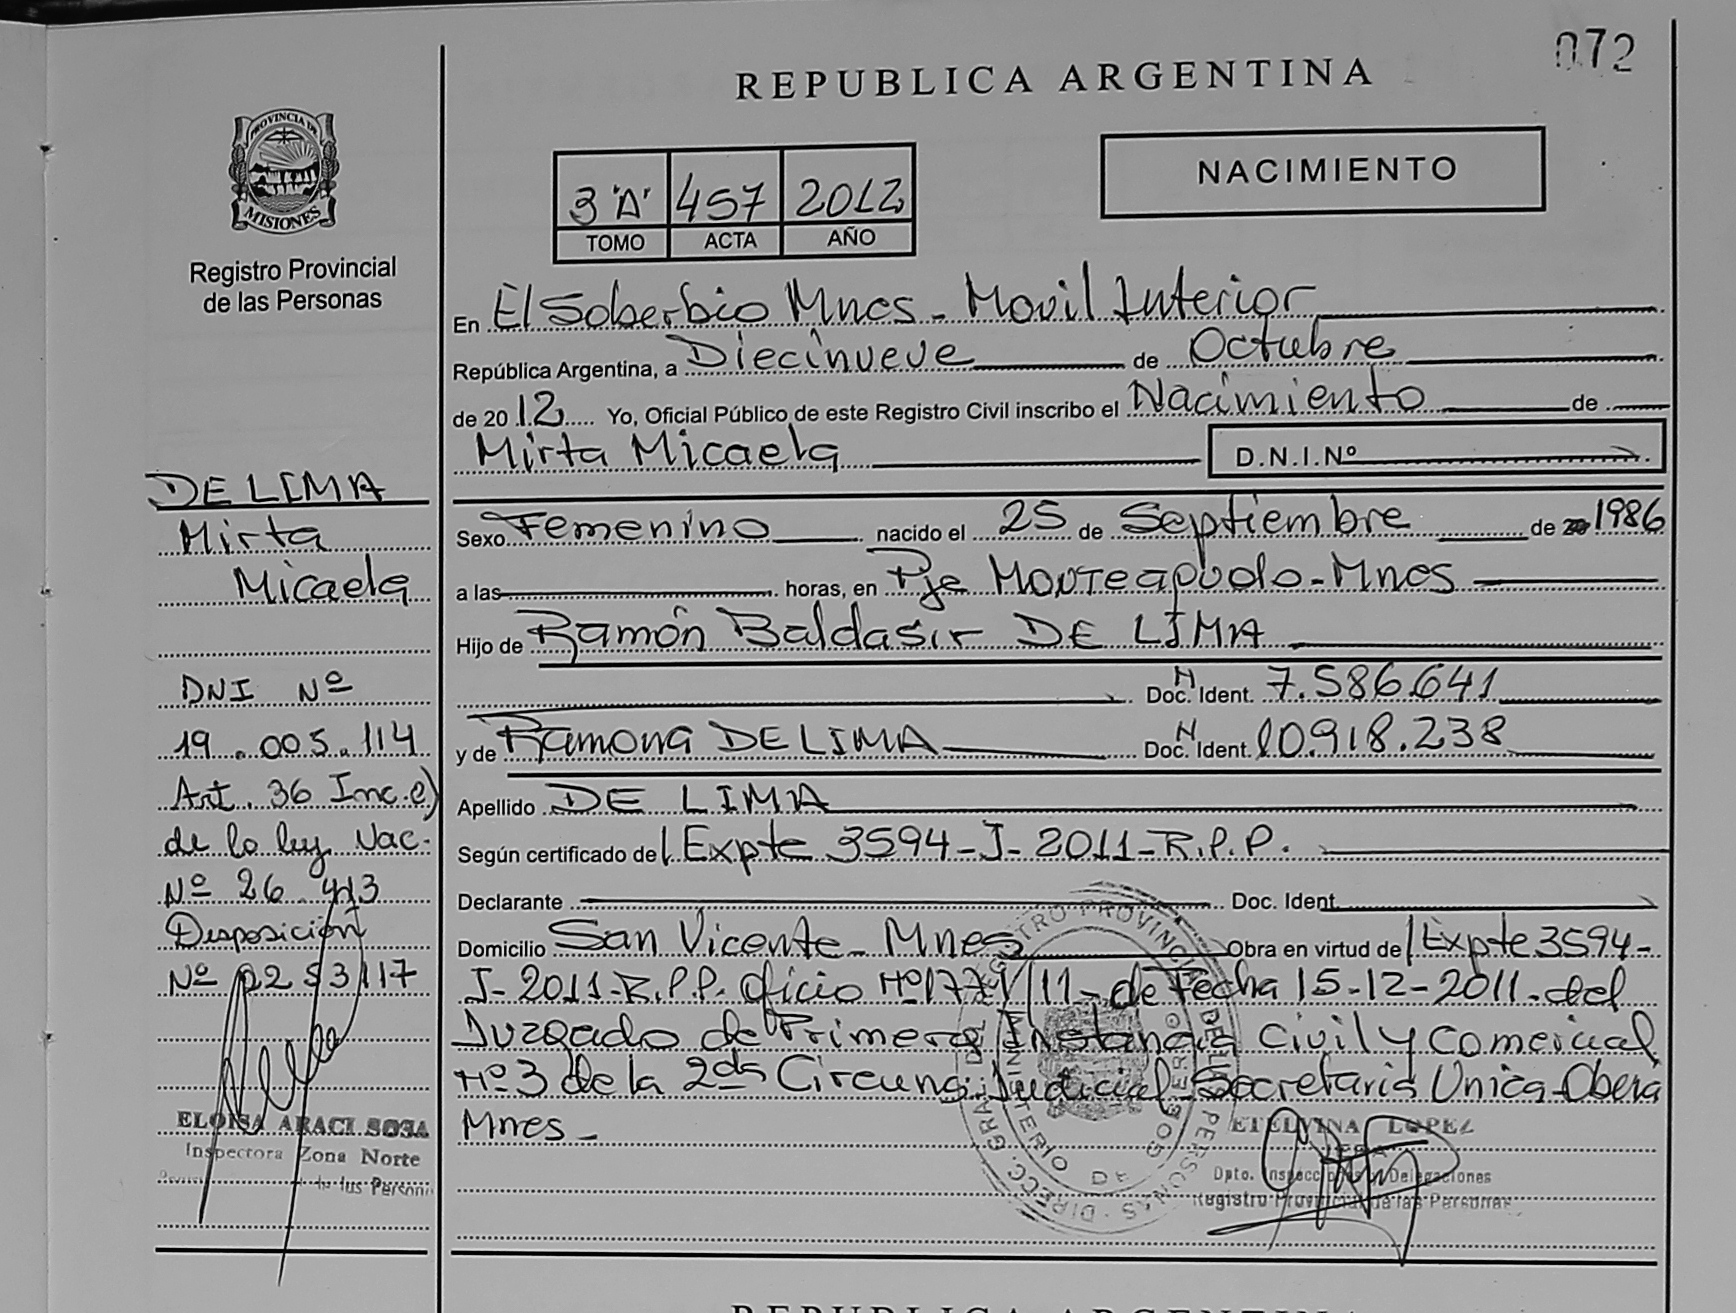 072
REPUBLICA ARGENTINA
NACIMIENTO
PROVINCIA DE
MISIONES
Registro Provincial
de las Personas
3 "A" 457 2012
TOMO ACTA AÑO
En El Soberbio Mnes - Movil Interior
República Argentina, a Diecinueve de Octubre
de 20 12 Yo, Oficial Público de este Registro Civil inscribo el Nacimiento de
Mirta Micaela D.N.I.Nº
Sexo Femenino nacido el 25 de Septiembre de 1986
a las horas, en Pje Monteagudo-Mnes
Hijo de Ramón Baldasir DE LIMA
M
Doc. Ident. 7.586.641
y de Ramona DE LIMA Doc. Ident. 10.918.238
Apellido DE LIMA
Según certificado de Expte 3594-J-2011-R.P.P.
Declarante Doc. Ident
Domicilio San Vicente - Mnes Obra en virtud de Expte 3594-
J-2011-R.P.P. Oficio Nº /11- de Fecha 15-12-2011. del
Juzgado de Primera Instancia Civil y Comercial
Nº 3 de la 2da Circuns. Judicial Secretaria Unica-Oberá
Mnes -
DE LIMA
Mirta
Micaela
DNI Nº
19.005.114
Art. 36 Inc. e)
de la ley Nac.
Nº 26.413
Disposición
Nº 2253/17
ELOISA ARACI SOSA
Inspectora Zona Norte
de las Person
ETELVINA LOPEZ
JEFA
Dpto. Inspección Delegaciones
Registro Provincial de las Personas
DIRECC. GRAL. DEL REGISTRO PROVINCIAL DE LAS PERSONAS
MINISTERIO DE GOBIERNO
REPUBLICA ARGENTINA